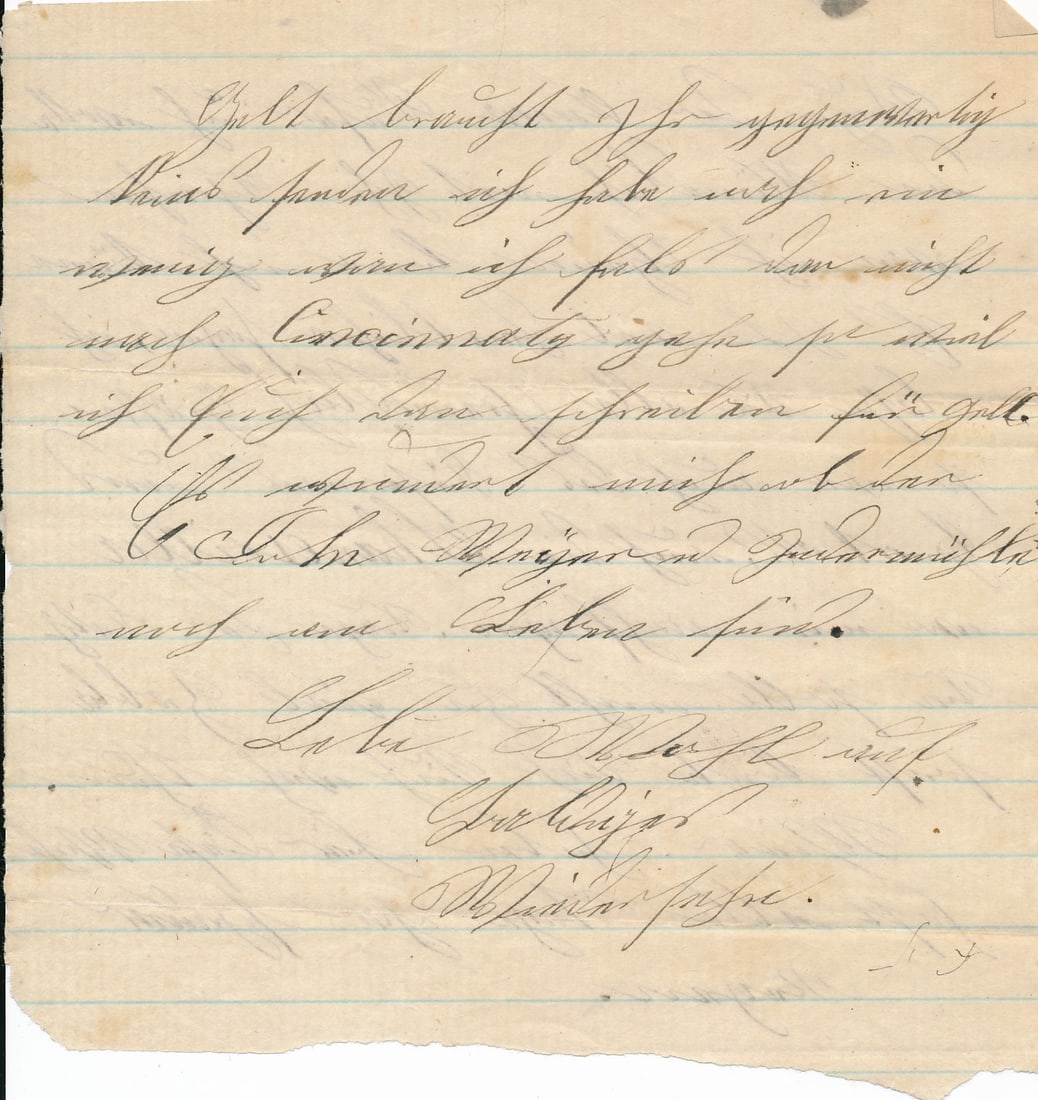 Gelt braucht Ihr gegenwertig
Keins senden ich habe noch ein
wenig wen ich fals dan nicht
nach Cincinnaty gehe so will
ich Euch dan schreiben für gelt.
Es wundert mich ob der
John Meÿer u Indermühle
noch am Leben sind.
Lebe Wohl auf
Baldiges
Wiedersehn.